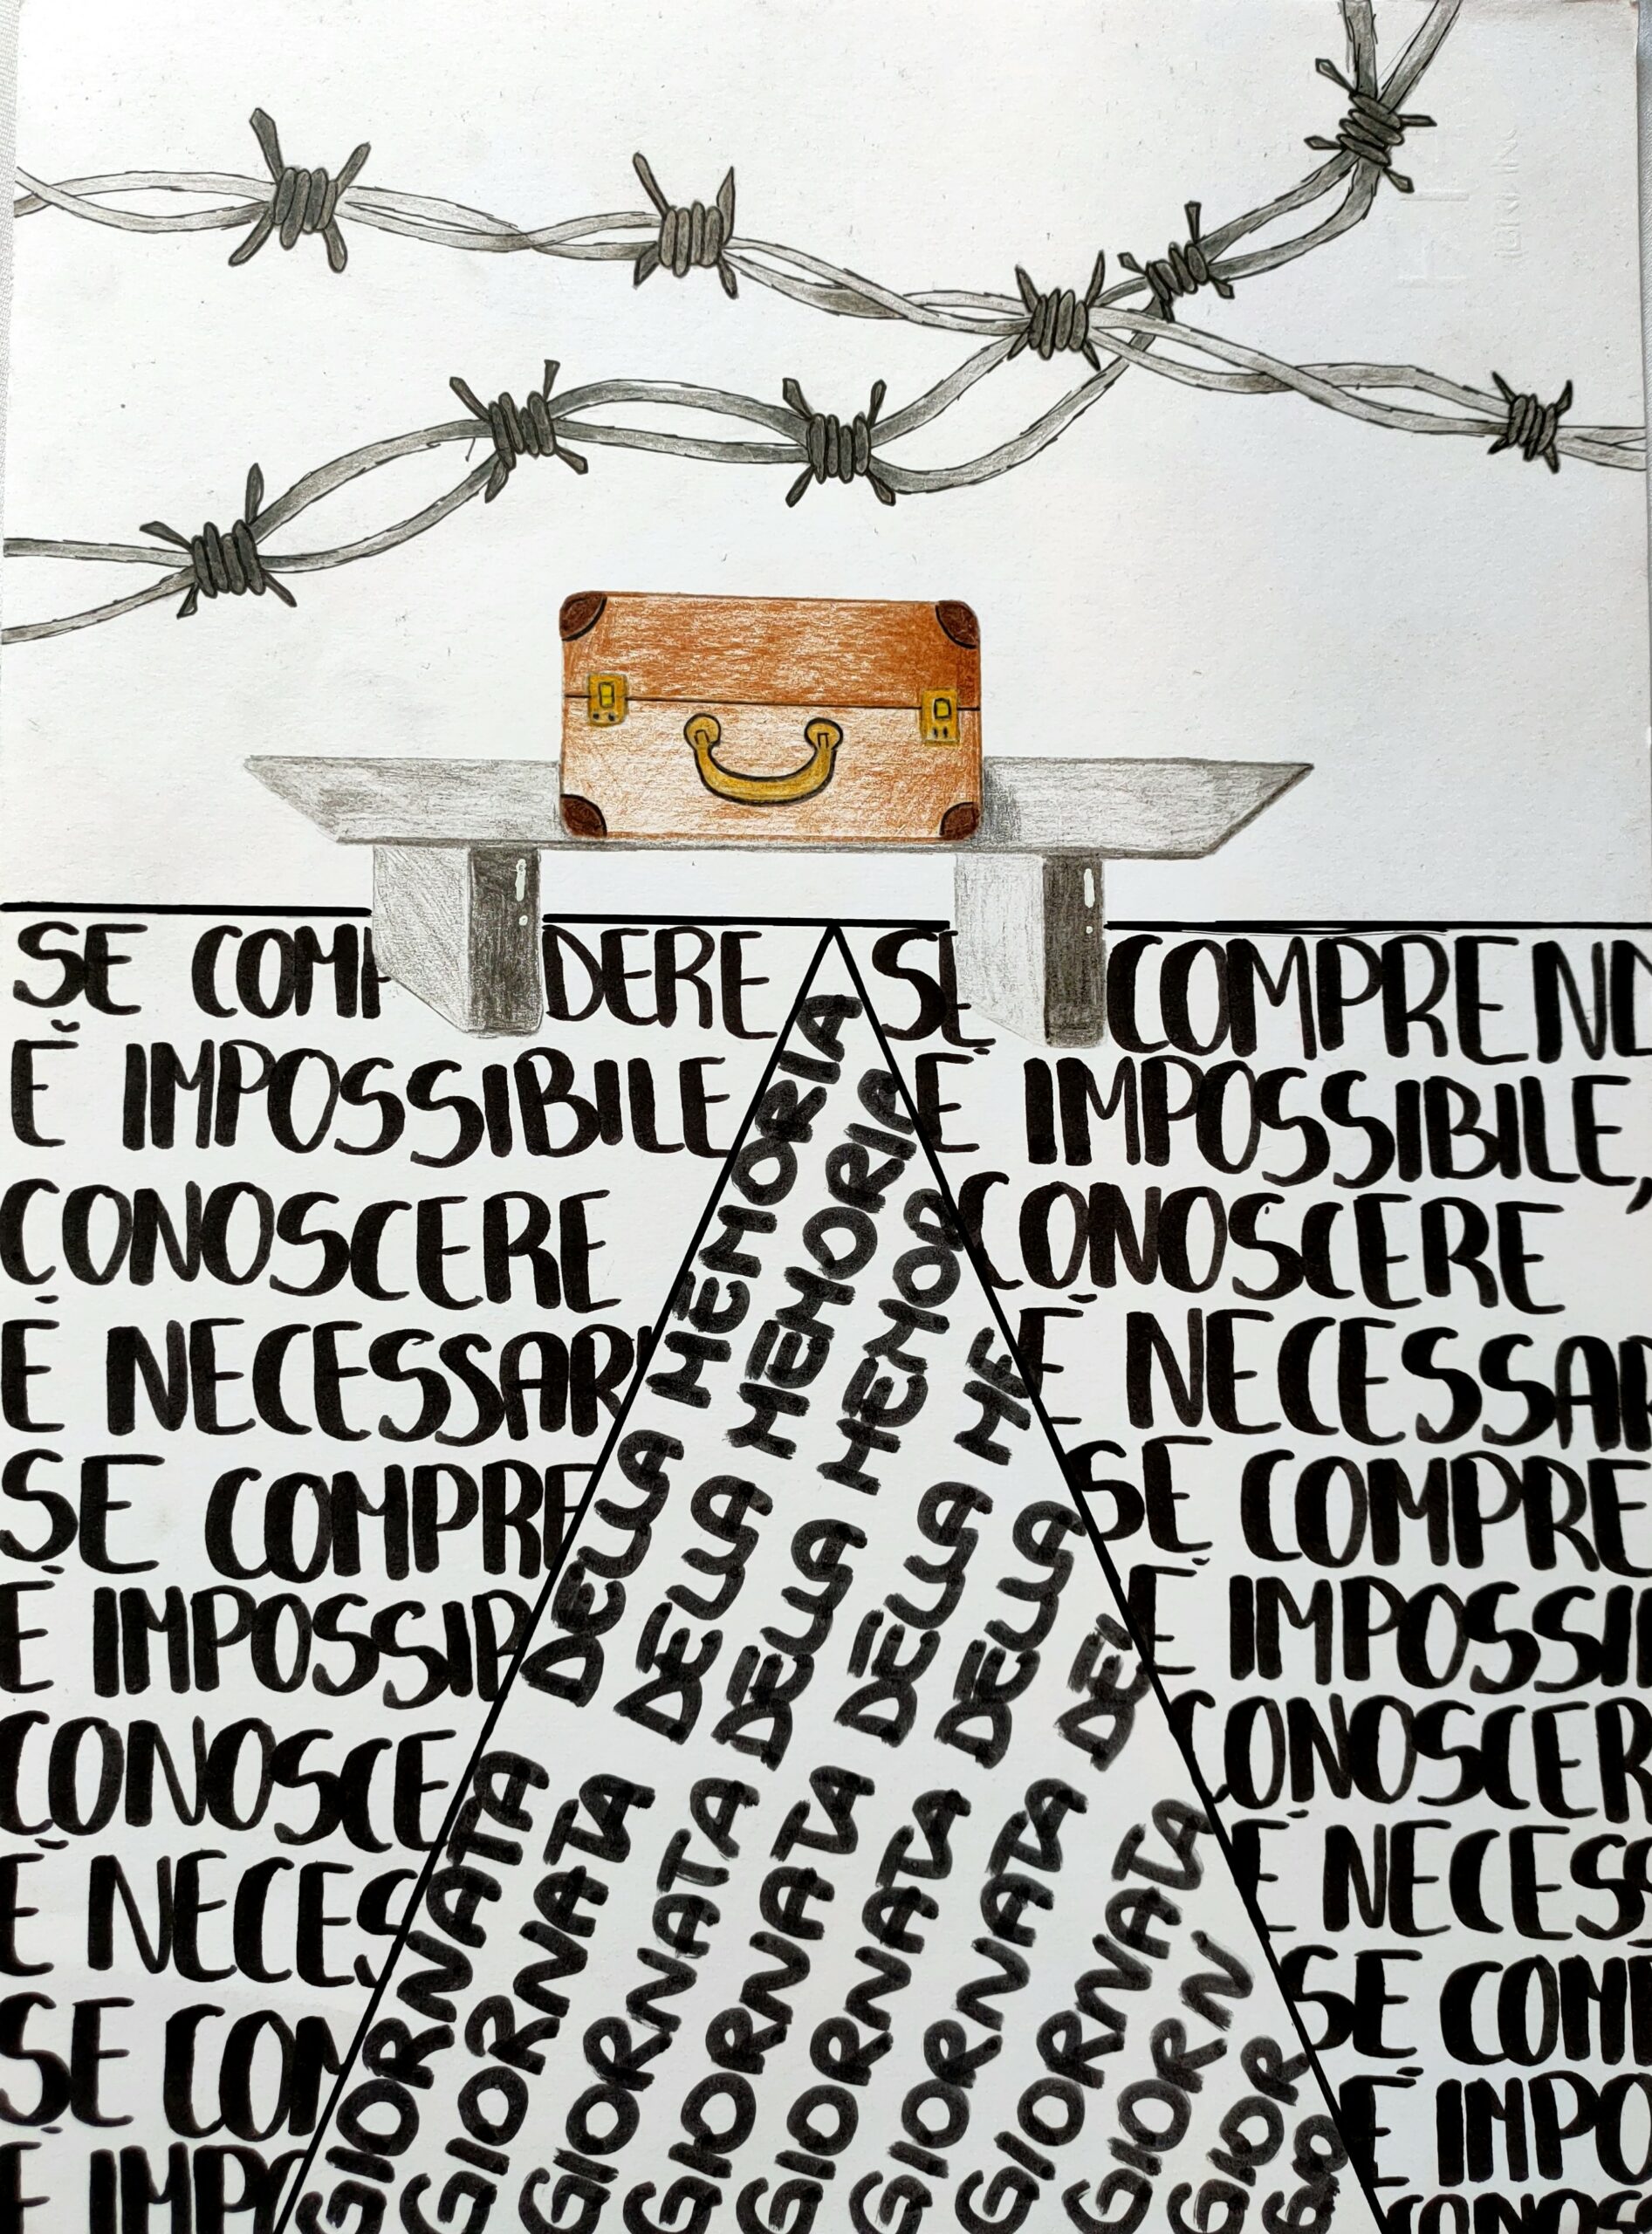 SE COMP DERE
È IMPOSSIBILE
CONOSCERE
È NECESSARI
SE COMPRE
È IMPOSSIB
CONOSCE
È NECES
SE COM
È IMPO
GIORNATA DELLA MEMORIA
GIORNATA DELLA MEMORIA
GIORNATA DELLA MEMOR
GIORNATA DELLA ME
GIORNATA DELLA
GIORNATA DEL
GIORNATA
GIORN
GIOR
GO
SE COMPREND
È IMPOSSIBILE,
CONOSCERE
È NECESSAR
SE COMPRE
È IMPOSSI
CONOSCER
È NECESS
SE COM
È IMPO
CONOS